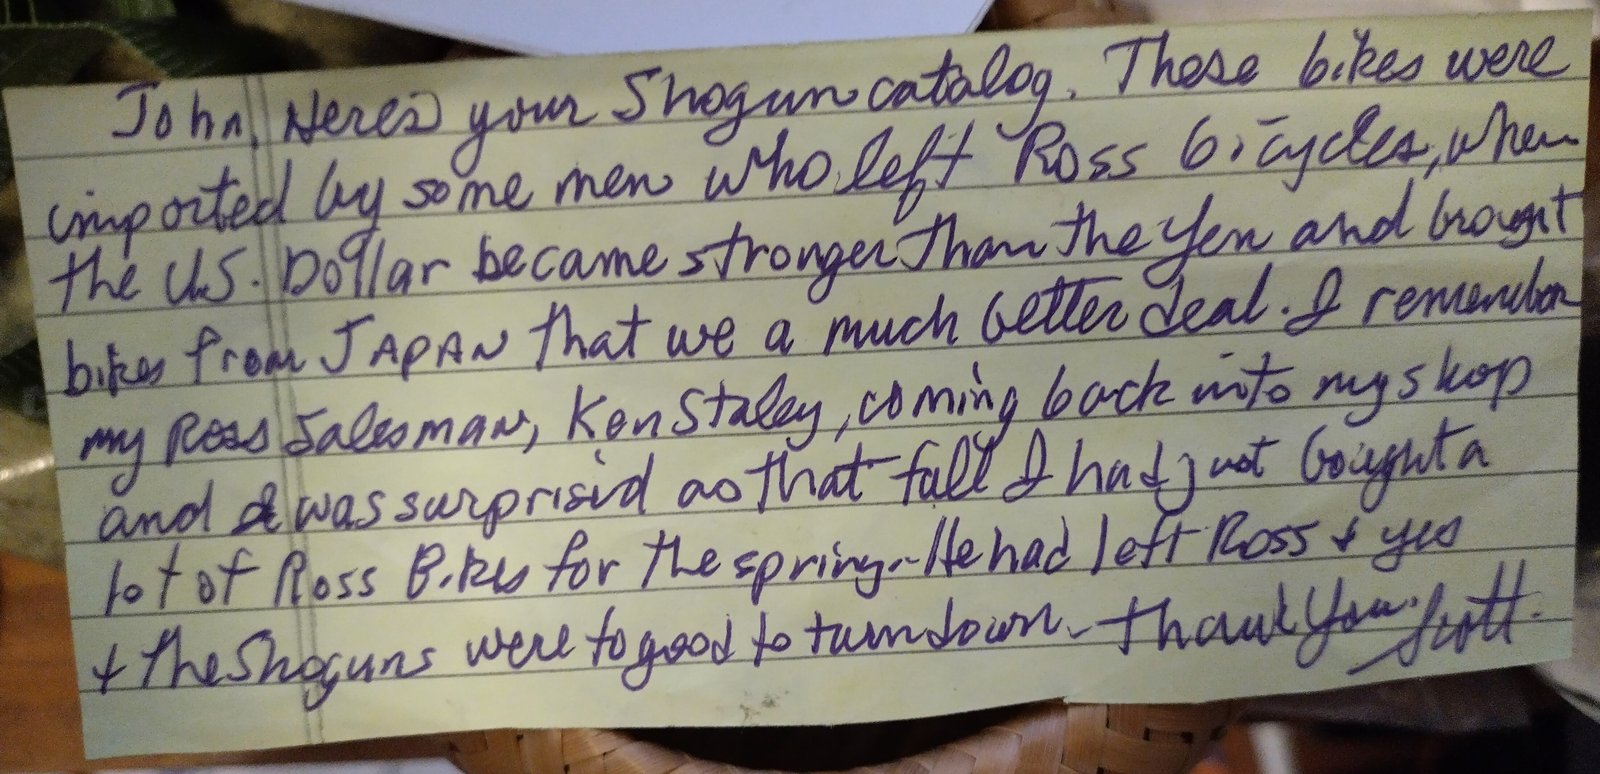 John, Here's your Shogun catalog. These bikes were
imported by some men who left Ross bicycles, when
the U.S. Dollar became stronger than the Yen and brought
bikes from JAPAN that we a much better deal. I remember
my Ross Salesman, Ken Staley, coming back into my shop
and I was surprisid as that fall I had just bought a
lot of Ross Bikes for the spring.- He had left Ross & yes
& the Shoguns were to good to turn down.- Thank You. Scott.